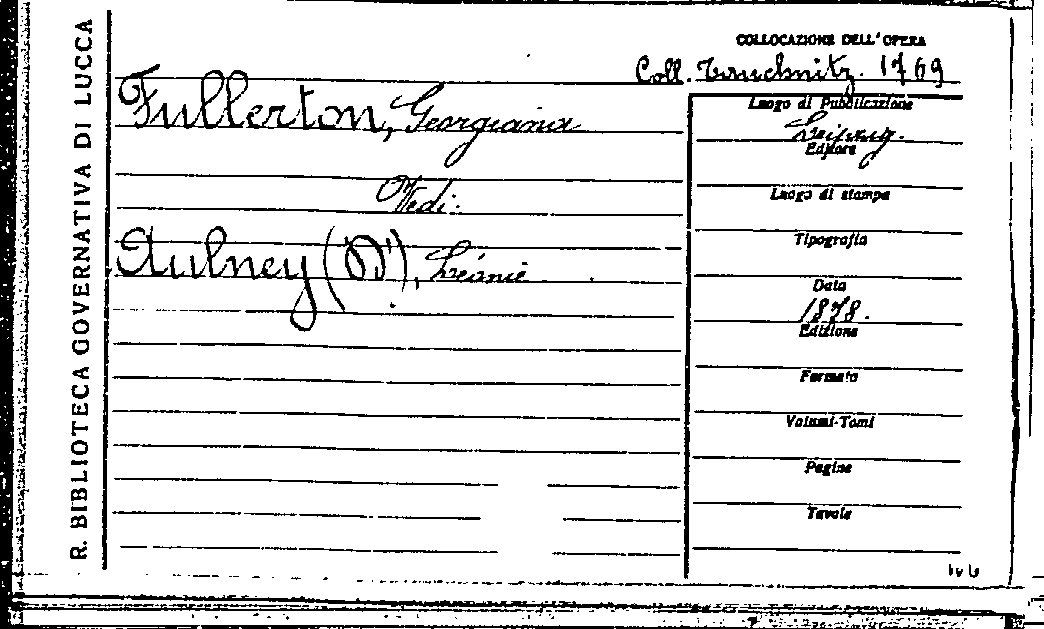 R. BIBLIOTECA GOVERNATIVA DI LUCCA
COLLOCAZIONE DELL'OPERA
Coll. Tauchnitz. 1769
Fullerton, Georgiana
Vedi:
Aulney (D'), Léonie
Luogo di Pubblicazione
Leipzig.
Editore
Luogo di stampa
Tipografia
Data
1878.
Edizione
Formato
Volumi-Tomi
Pagine
Tavole